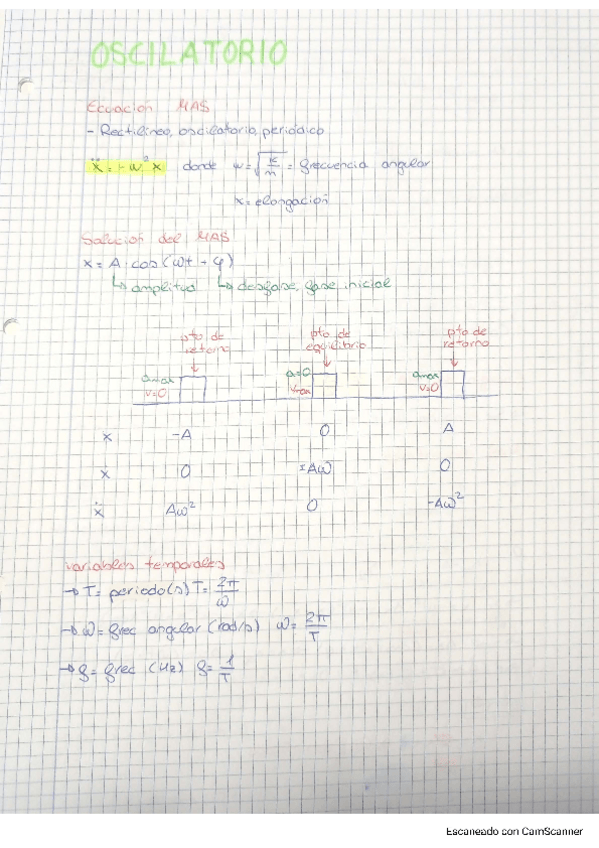 OSCILATORIO
Ecuación MAS
- Rectilíneo, oscilatorio, periódico
ẍ = -ω² x donde ω = √(K/m) = frecuencia angular
x = elongación
Solución del MAS
x = A · cos(ωt + φ)
↳ amplitud ↳ desfase, fase inicial
pto de retorno pto de equilibrio pto de retorno
amax a=0 amax
v=0 vmax v=0
x -A 0 A
x 0 ±Aω 0
ẍ Aω² 0 -Aω²
variables temporales
→ T = periodo (s) T = 2π/ω
→ ω = frec angular (rad/s) ω = 2π/T
→ f = frec (Hz) f = 1/T
Escaneado con CamScanner